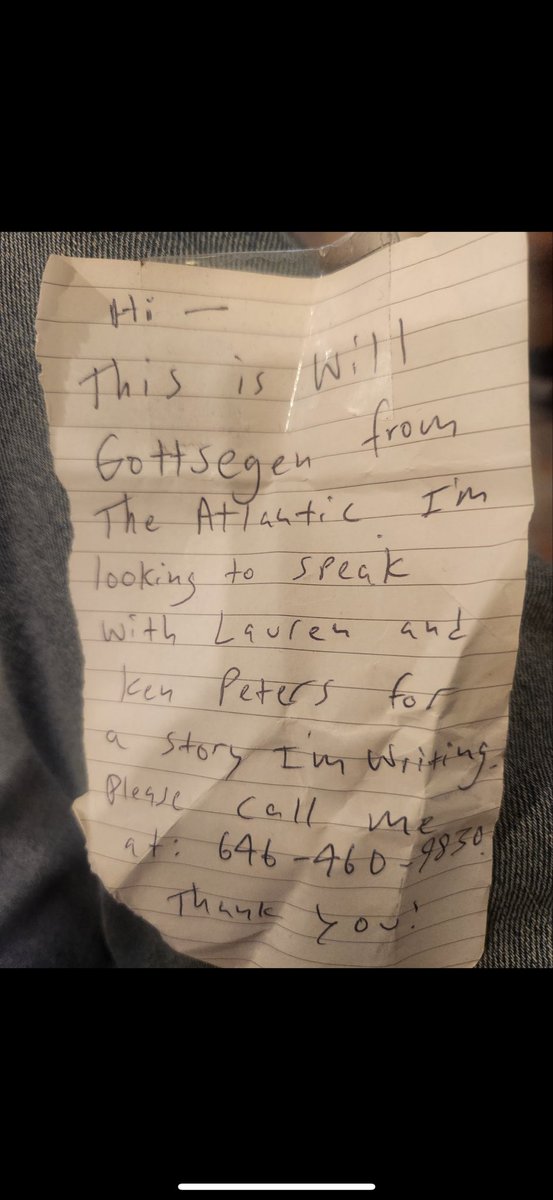 Hi —
This is Will
Gottsegen from
The Atlantic. I'm
looking to speak
with Lauren and
Ken Peters for
a story I'm writing.
Please call me
at: 646-460-9830.
Thank you!